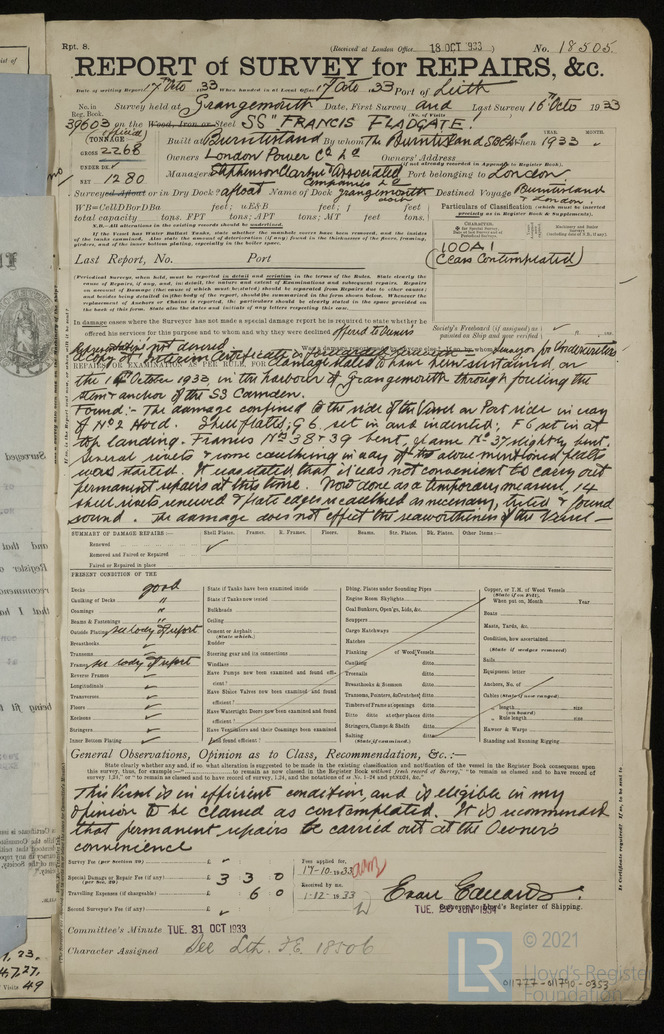 Rpt. 8.
(Received at London Office 18 OCT 1933)
No. 18505.
REPORT of SURVEY for REPAIRS, &c.
Date of writing Report 17th Octo. 33 When handed in at Local Office 17 Octo. 33 Port of Leith
No. in Survey held at Grangemouth Date, First Survey and Last Survey 16th Octo 1933
Reg. Book. (No. of Visits)
39603 on the Wood, Iron or Steel SS "FRANCIS FLADGATE".
TONNAGE (official) Built at Burntisland By whom The Burntisland SB Co Ltd When 1933
YEAR. MONTH.
GROSS 2268
UNDER DK.
NET 1280
Owners London Power Co Ld Owners' Address
(if not already recorded in Appendix to Register Book).
Managers Stephenson Clarke & Associated Companies Ld Port belonging to London
Surveyed afloat or in Dry Dock? afloat Name of Dock Grangemouth dock Destined Voyage Burntisland & London
WB=CellDBorDBa feet; uE&B feet; f feet
total capacity tons. FPT tons; APT tons; MT feet tons.
N.B.—All alterations in the existing records should be underlined.
Particulars of Classification (which must be inserted precisely as in Register Book & Supplements).
CHARACTER.
100A1
(Class Contemplated)
Last Report, No. Port
In damage cases where the Surveyor has not made a special damage report he is to state whether he
offered his services for this purpose and to whom and why they were declined offered to Owner's
Representative, not desired.
Society's Freeboard (if assigned) as painted on Ship and year verified ft. ins.
Copy of Interim Certificate is forwarded herewith
REPAIRS, OR EXAMINATION AS PER RULE, FOR damage stated to have been sustained on
the 16th October 1933, in the harbour of Grangemouth through fouling the
stem & anchor of the SS Camden.
Found:- The damage confined to the side of the Vessel on Port side in way
of No 2 Hold. Shell plates; G 6 set in and indented; F 6 set in at
top landing. Frames Nos 38 & 39 bent, frame No 37 slightly bent.
Several rivets & some caulking in way of the above mentioned plates
was started. It was stated that it was not convenient to carry out
permanent repairs at this time. Now done as a temporary measure, 14
shell rivets renewed & plate edges recaulked as necessary, tested & found
sound. The damage does not effect the seaworthiness of the Vessel —
SUMMARY OF DAMAGE REPAIRS:— Shell Plates. Frames. R. Frames. Floors. Beams. Str. Plates. Dk. Plates. Other Items:—
Renewed
Removed and Faired or Repaired
Faired or Repaired in place
PRESENT CONDITION OF THE
Decks good
Caulking of Decks "
Coamings "
Beams & Fastenings "
Outside Plating see body of report
Breasthooks
Transoms
Frames see body of report
Reverse Frames
Longitudinals
Transverses
Floors
Keelsons
Stringers
Inner Bottom Plating
State if Tanks have been examined inside
State if Tanks now tested
Bulkheads
Ceiling
Cement or Asphalt (State which.)
Rudder
Steering gear and its connections
Windlass
Have Pumps now been examined and found efficient?
Have Sluice Valves now been examined and found efficient?
Have Watertight Doors now been examined and found efficient?
Have Ventilators and their Coamings been examined and found efficient?
Dblng. Plates under Sounding Pipes
Engine Room Skylights
Coal Bunkers, Open'gs, Lids, &c.
Scuppers
Cargo Hatchways
Hatches
Planking of Wood Vessels
Caulking ditto
Treenails ditto
Breasthooks & Stemson ditto
Transoms, Pointers, & Crutches ditto
Timbers of Frame at openings ditto
Ditto ditto at other places ditto
Stringers, Clamps & Shelfs ditto
Salting (State if examined.) ditto
Copper, or Y.M. of Wood Vessels (State if on Felt).
When put on, Month Year
Boats
Masts, Yards, &c.
Condition, how ascertained
(State if wedges removed)
Sails
Equipment letter
Anchors, No. of
Cables (State if now ranged)
„ length size
(on board)
„ Rule length size
Hawser & Warps
Standing and Running Rigging
General Observations, Opinion as to Class, Recommendation, &c.:—
This Vessel is in efficient condition, and is eligible in my
opinion to be classed as contemplated. It is recommended
that permanent repairs be carried out at the Owner's
convenience
Survey Fee (per Section 29) £
Special Damage or Repair Fee (if any) (per Sec. 29) £ 3 3 0
Travelling Expenses (if chargeable) £ 6 0
Second Surveyor's Fee (if any) £
Fees applied for, 17-10-1933
Received by me, 1-12-1933
Evan Edwards.
Surveyor to Lloyd's Register of Shipping.
TUE. 26 JUN 1934
Committee's Minute TUE. 31 OCT 1933
Character Assigned See Lth. F.E. 18506
LR
© 2021
Lloyd's Register
Foundation
011777-011790-0353